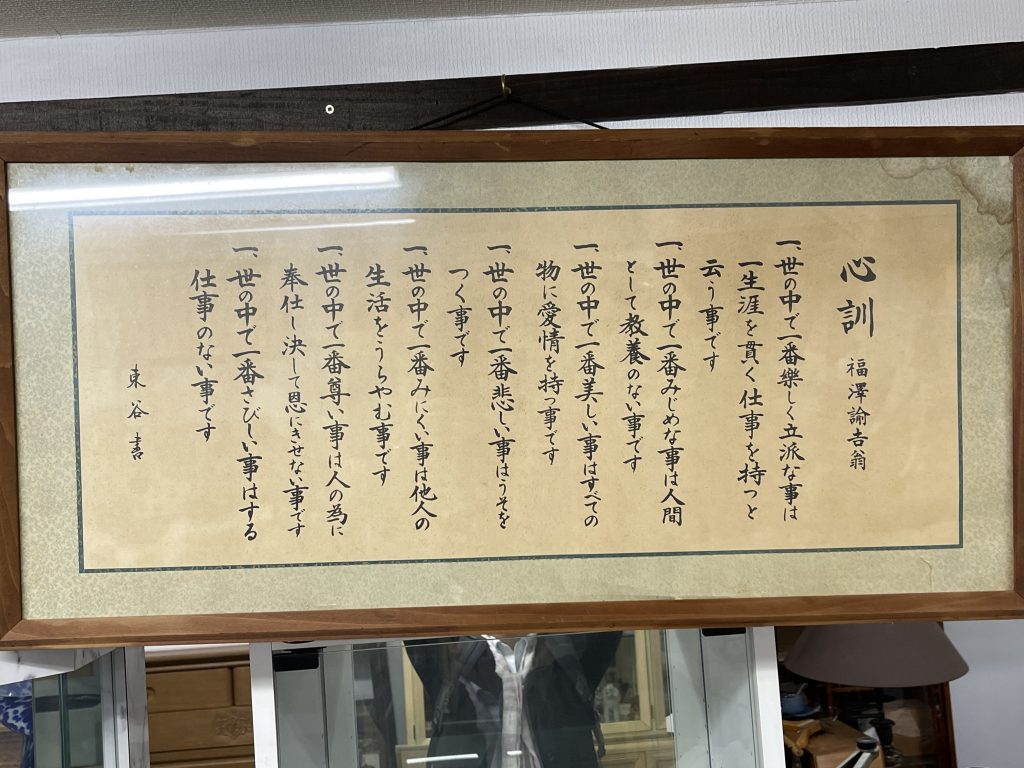 心訓 福澤諭吉翁
一、世の中で一番樂しく立派な事は
一生涯を貫く仕事を持つと
云う事です
一、世の中で一番みじめな事は人間
として教養のない事です
一、世の中で一番美しい事はすべての
物に愛情を持つ事です
一、世の中で一番悲しい事はうそを
つく事です
一、世の中で一番みにくい事は他人の
生活をうらやむ事です
一、世の中で一番尊い事は人の為に
奉仕し決して恩にきせない事です
一、世の中で一番さびしい事はする
仕事のない事です
東谷書